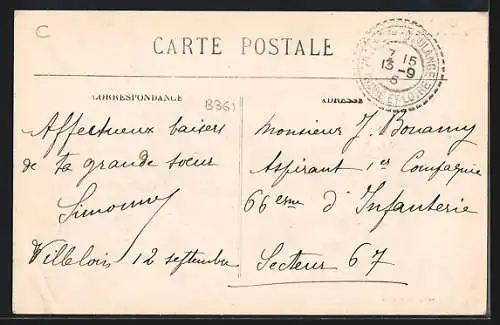 C
CARTE POSTALE
CORRESPONDANCE
ADRESSE
B361
7 15
13 -9
5
INDRE ET LOIRE
Affectueux baisers
de ta grande soeur
Simonne
Villeloin 12 septembre
Monsieur J. Bonamy
Aspirant 1er Compagnie
66eme d'Infanterie
Secteur 67